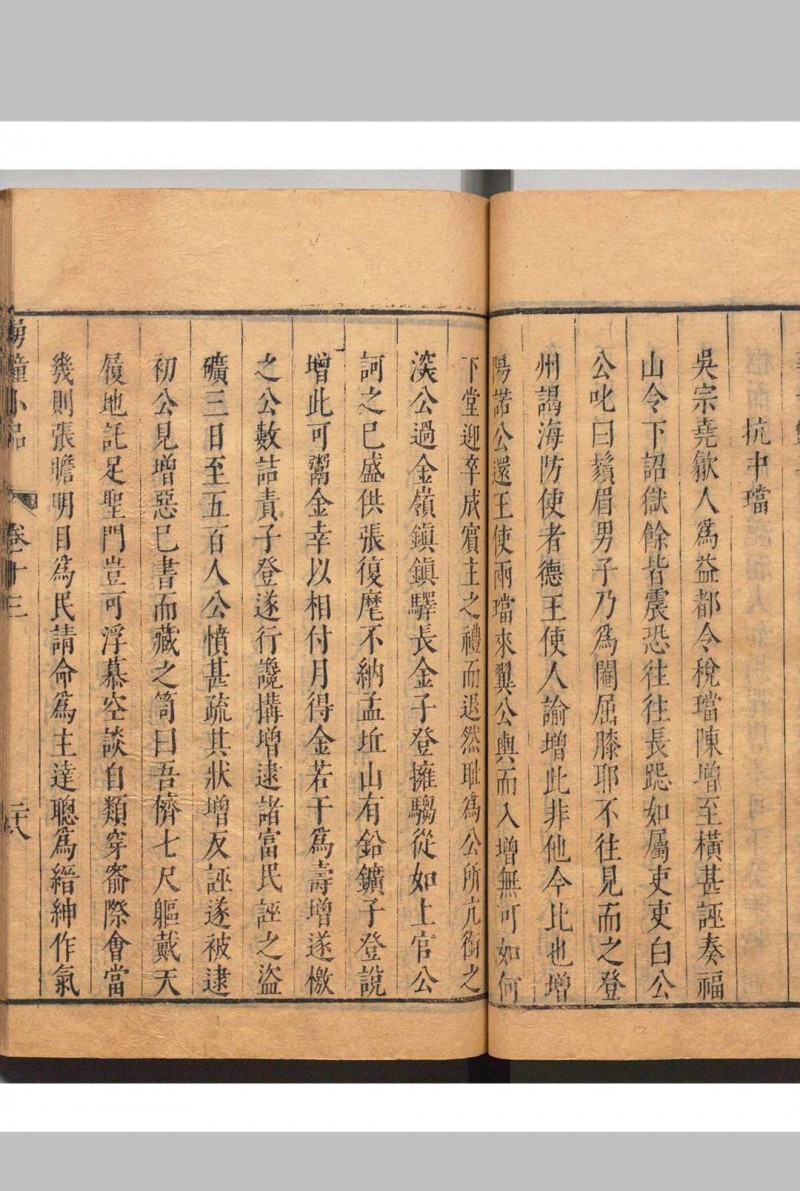 抗中璫
吳宗堯歙人爲益都令稅璫陳增至橫甚誣奏福
山令下詔獄餘皆震恐往往長跽如屬吏吏白公
公叱曰鬚眉男子乃爲閹屈膝耶不往見而之登
州謁海防使者德王使人諭增此非他令比也增
陽諾公還王使兩璫來翼公輿而入增無可如何
下堂迎卒成賓主之禮而退然耻爲公所亢銜之
深公過金嶺鎮鎮驛長金子登擁騶從如上官公
訶之巳盛供張復麾不納孟坵山有鉛鑛子登說
增此可鬻金幸以相付月得金若干爲壽增遂檄
之公數詰責子登遂行讒搆增逮諸富民誣之盜
礦三日至五百人公憤甚疏其狀增反誣遂被逮
初公見增惡巳書而藏之笥曰吾儕七尺軀戴天
履地託足聖門豈可浮慕空談自類穿窬際會當
幾則張瞻明目爲民請命爲主達聰爲縉紳作氣
湧幢小品 卷十三 二六